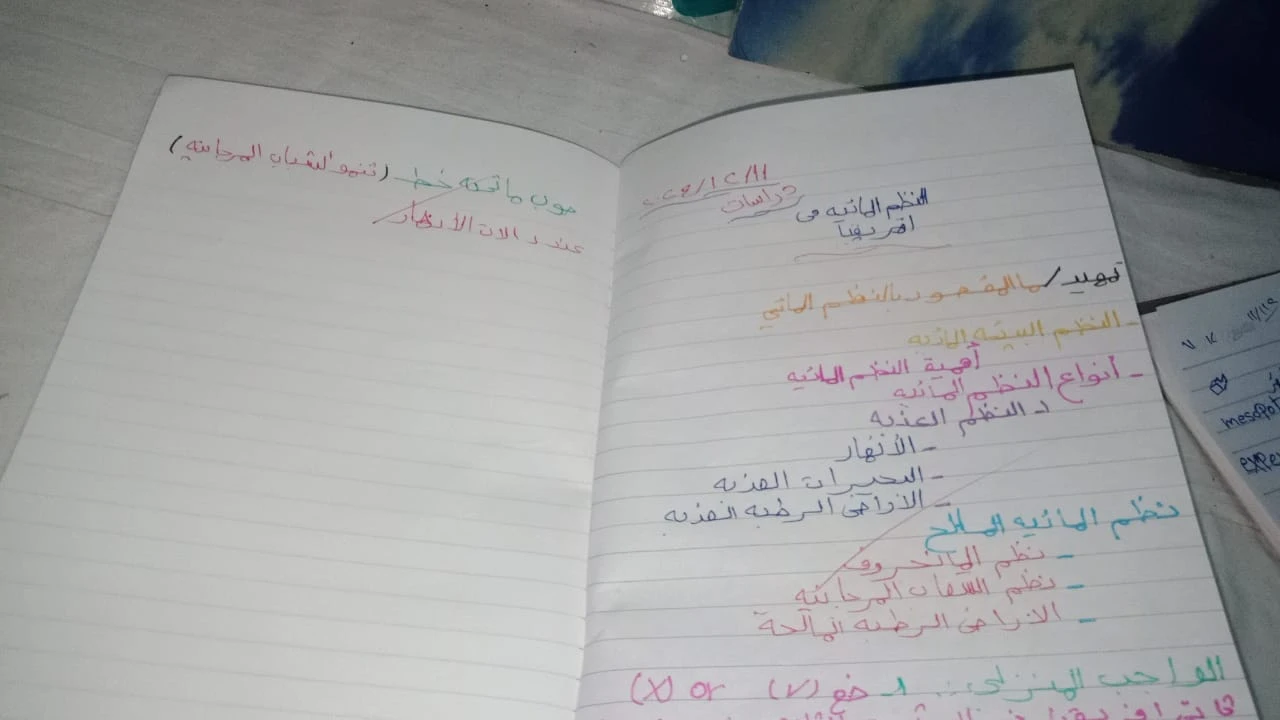 ٢٠٢٤/١٢/١١
دراسات
النظم المائيه فى
افريقيا
تمهيد/ ما المقصود بالنظم المائي
- النظم البيئيه المائيه
أهمية النظم المائيه
- أنواع النظم المائيه
١ـ النظم العذبه
- الأنهار
- البحيرات العذبه
- الاراضى الرطبه العذبه
نظم المائيه المالح
- نظم المانجروف
- نظم الشعاب المرجانيه
- الاراضى الرطبه المالحة
الواجب المنزلى .. ١ـ ضع (√) or (X)
صوب ما تحته خط (تنمو الشعاب المرجانيه)
عند دالات الأنهار
١١/١١٩
mesopot
expe